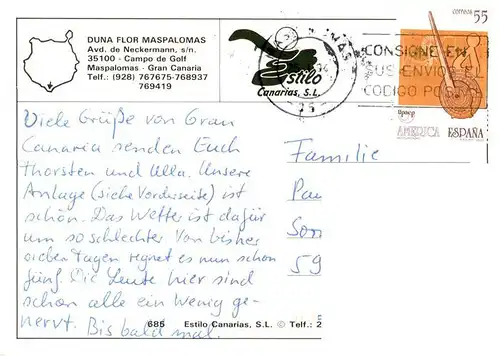 DUNA FLOR MASPALOMAS
Avd. de Neckermann, s/n.
35100 - Campo de Golf
Maspalomas - Gran Canaria
Telf.: (928) 767675-768937
769419
Estilo
Canarias, S.L.
35
CONSIGNE EN
SUS ENVIOS
CODIGO POST
correos 55
Upaep
AMERICA ESPAÑA
Viele Grüße von Gran
Canaria senden Euch
Thorsten und Ulla. Unsere
Anlage (siehe Vorderseite) ist
schön. Das Wetter ist dafür
um so schlechter. Von bisher
sieben Tagen regnet es nun schon
fünf. Die Leute hier sind
schon alle ein wenig ge-
nervt. Bis bald mal.
Familie
Pau
Son
59
685 Estilo Canarias, S.L. © Telf.: 2